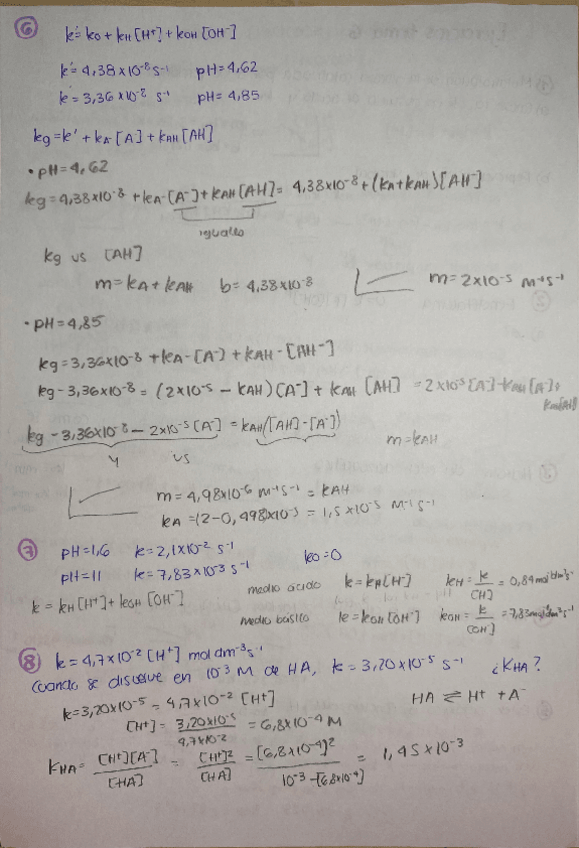 ⑥ k' = k0 + kH [H+] + kOH [OH-]
k' = 4,38x10-8 s-1 pH = 4,62
k' = 3,36 x10-8 s-1 pH = 4,85
kg = k' + kA- [A-] + kAH [AH]
• pH = 4,62
kg = 4,38x10-8 + kA- [A-] + kAH [AH] = 4,38x10-8 + (kA + kAH) [AH-]
iguales
kg vs [AH]
m = kA + kAH b = 4,38x10-8 m = 2x10-5 M-1 s-1
• pH = 4,85
kg = 3,36x10-8 + kA- [A-] + kAH - [AH-]
kg - 3,36x10-8 = (2x10-5 - kAH) [A-] + kAH [AH] = 2x10-5 [A-] - kAH [A-] +
kAH [AH]
kg - 3,36x10-8 - 2x10-5 [A-] = kAH ([AH] - [A-])
m = kAH
y vs
m = 4,98x10-6 M-1 s-1 = kAH
kA = (2 - 0,498)x10-5 = 1,5x10-5 M-1 s-1
⑦ pH = 1,6 k = 2,1x10-2 s-1 k0 = 0
pH = 11 k = 7,83x10-3 s-1
medio ácido k = kH [H+] kH = k / [H] = 0,84 mol-1 dm3 s-1
k = kH [H+] + kOH [OH-]
medio básico k = kOH [OH-] kOH = k / [OH] = 7,83 mol-1 dm3 s-1
⑧ k = 4,7x10-2 [H+] mol dm-3 s-1
Cuando se disuelve en 10-3 M de HA, k = 3,20x10-5 s-1 ¿KHA?
k = 3,20x10-5 = 4,7x10-2 [H+]
HA ⇌ H+ + A-
[H+] = 3,20x10-5 / 4,7x10-2 = 6,8x10-4 M
KHA = [H+][A-] / [HA] = [H+]2 / [HA] = [6,8x10-4]2 / 10-3 - [6,8x10-4] = 1,45x10-3